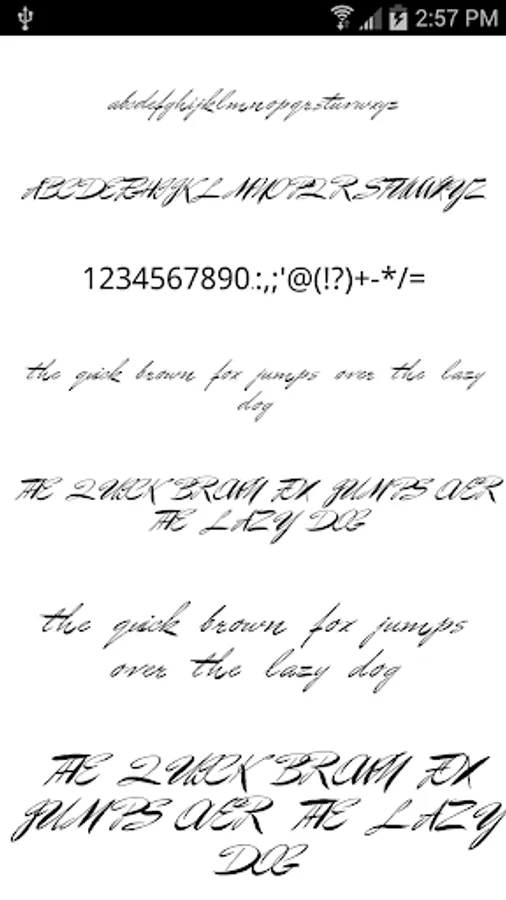 2:57 PM
abcdefghijklmnopqrstuvwxyz
ABCDEFGHIJKLMNOPQRSTUVWXYZ
1234567890.:,;'@(!?)+-*/=
the quick brown fox jumps over the lazy
dog
THE QUICK BROWN FOX JUMPS OVER
THE LAZY DOG
the quick brown fox jumps
over the lazy dog
THE QUICK BROWN FOX
JUMPS OVER THE LAZY
DOG